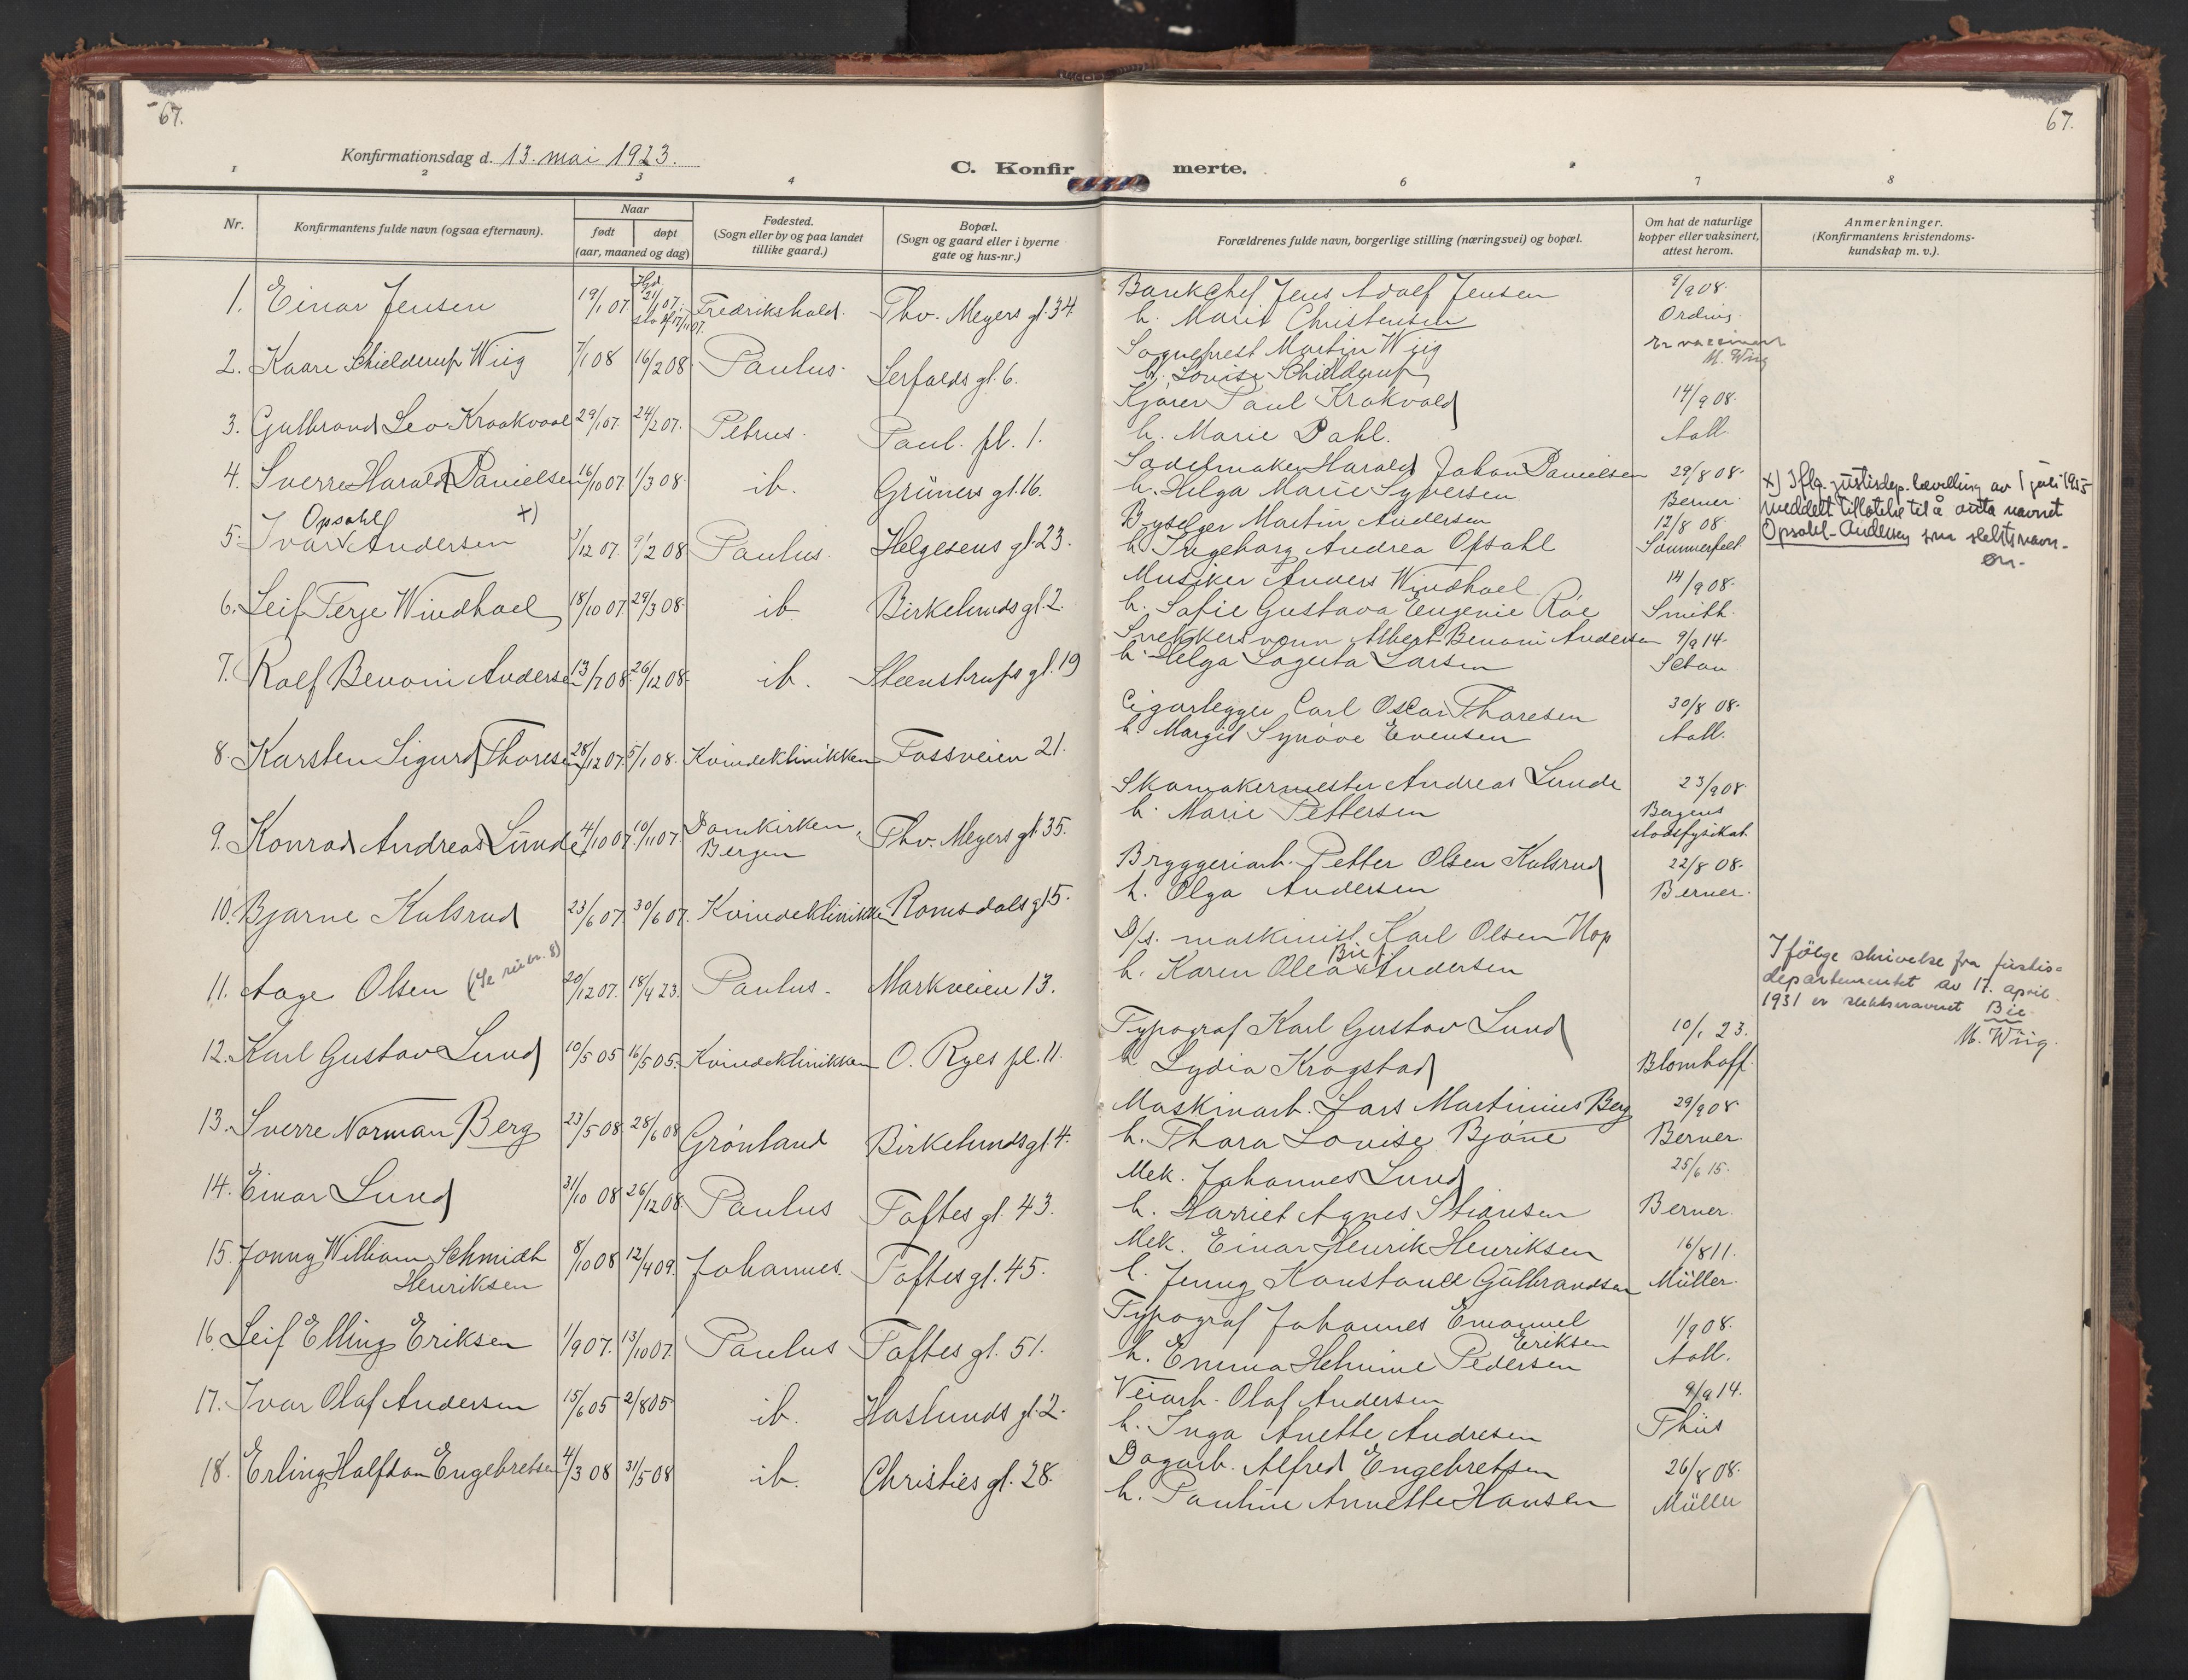 67.
67.
Konfirmationsdag d. 13. mai 1923.
C. Konfirmerte.
1 2 3 4 6 7 8
Nr.
Konfirmantens fulde navn (ogsaa efternavn).
Naar
født døpt
(aar, maaned og dag)
Fødested.
(Sogn eller by og paa landet
tillike gaard.)
Bopæl.
(Sogn og gaard eller i byerne
gate og hus-nr.)
Forældrenes fulde navn, borgerlige stilling (næringsvei) og bopæl.
Om hat de naturlige
kopper eller vaksinert,
attest herom.
Anmerkninger.
(Konfirmantens kristendoms-
kundskap m. v.).
1. Einar Jensen 19/1 07. 21/1 07. Fredrikshald. Thv. Meyers gt. 34
Bankchef Jens Adolf Jensen 9/9 08.
h. Marie Christensen Ording.
2. Kaare Schielderup Wiig 7/1 08 16/2 08. Paulus. Serfalds gt. 6.
Sogneprest Martin Wiig Er vaccinert
h. Lovise Schielderup M. Wiig
3. Gulbrand Leo Kraakvaal 29/1 07. 24/2 07. Petrus. Paul. pl. 1.
Kjører Paul Krakvold 14/9 08.
h. Marie Dahl. Aall.
4. Sverre Harald Danielsen 16/10 07 1/3 08. ib. Grüners gt. 16.
Sadelmaker Harald Johan Danielsen 29/8 08.
h. Helga Marie Syversen Berner.
Opsahl x)
5. Ivar Andersen 3/12 07. 9/2 08 Paulus. Helgesens gt. 23.
Byselger Martin Andersen 12/8 08.
h. Ingeborg Andrea Opsahl Sømmerfelt
x) Iflg. justisdep. bevilling av 1 juli 1955
meddelt tillatelse til å anta navnet
Opsahl-Andersen som slektsnavn.
6. Leif Terje Windhael 18/10 07 29/3 08. ib Birkelunds gt. 2.
Musiker Anders Windhael. 14/9 08.
h. Sofie Gustava Eugenie Roe Smith.
7. Rolf Benoni Andersen 13/7 08. 26/12 08. ib. Steenstrups gt. 19
Snekkersvenn Albert Benoni Andersen 9/9 14.
h. Helga Lagerta Larsen
8. Karsten Sigurd Thoresen 28/12 07. 5/1 08. Kvindeklinikken Fossveien 21.
Cigarlegger Carl Oscar Thoresen 30/8 08.
h. Margit Synøve Evensen Aall.
9. Konrad Andreas Lunde 4/10 07. 10/11 07. Domkirken, Bergen Thv. Meyers gt. 35.
Skomakermester Andreas Lunde 23/9 08.
h. Marie Pettersen Bergens
stadsfysikat.
10. Bjarne Kulsrud 23/6 07. 30/6 07. Kvindeklinikken Romsdals gt. 5.
Bryggeriarb. Petter Olsen Kulsrud 22/8 08.
h. Olga Andersen Berner.
11. Aage Olsen (Se rubr. 8) 20/12 07. 18/4 23. Paulus. Markveien 13.
D/s. maskinist Karl Olsen Hop
Bie
h. Karen Olea Andersen
Ifølge skrivelse fra justis-
departementet av 17. april
1931 er slektsnavnet Bie.
M. Wiig.
12. Karl Gustav Lund 10/5 05 16/5 05. Kvindeklinikken O. Ryes pl. 11.
Typograf Karl Gustav Lund 10/1 23.
h Lydia Krogstad Blomhoff.
13. Sverre Norman Berg 23/5 08 28/6 08 Grønland Birkelunds gt 4.
Maskinarb. Lars Martinius Berg 29/9 08
h. Thora Lovise Bjøne Berner.
14. Einar Lund 31/10 08 26/12 08. Paulus Toftes gt. 43.
Mek. Johannes Lund 25/6 15.
h. Harriet Agnes Stiansen Berner.
15. Jonny William Schmidt Henriksen 8/10 08 12/4 09. Johannes. Toftes gt. 45.
Mek. Einar Henrik Henriksen 16/8 11.
h. Jenny Konstance Gulbrandsen Müller.
16. Leif Elling Eriksen 1/9 07. 13/10 07. Paulus Toftes gt. 51.
Typograf Johannes Emanuel Eriksen 1/9 08.
h. Emma Helmine Pedersen Aall.
17. Ivar Olaf Andersen 15/6 05 2/8 05 ib. Haslunds gt. 2.
Veiarb. Olaf Andersen 9/9 14.
h. Inga Anette Andresen Thiis
18. Erling Halfdan Engebretsen 4/3 08 31/5 08 ib. Christies gt. 28.
Dagarb. Alfred Engebretsen 26/8 08.
h. Pauline Annette Hansen Müller